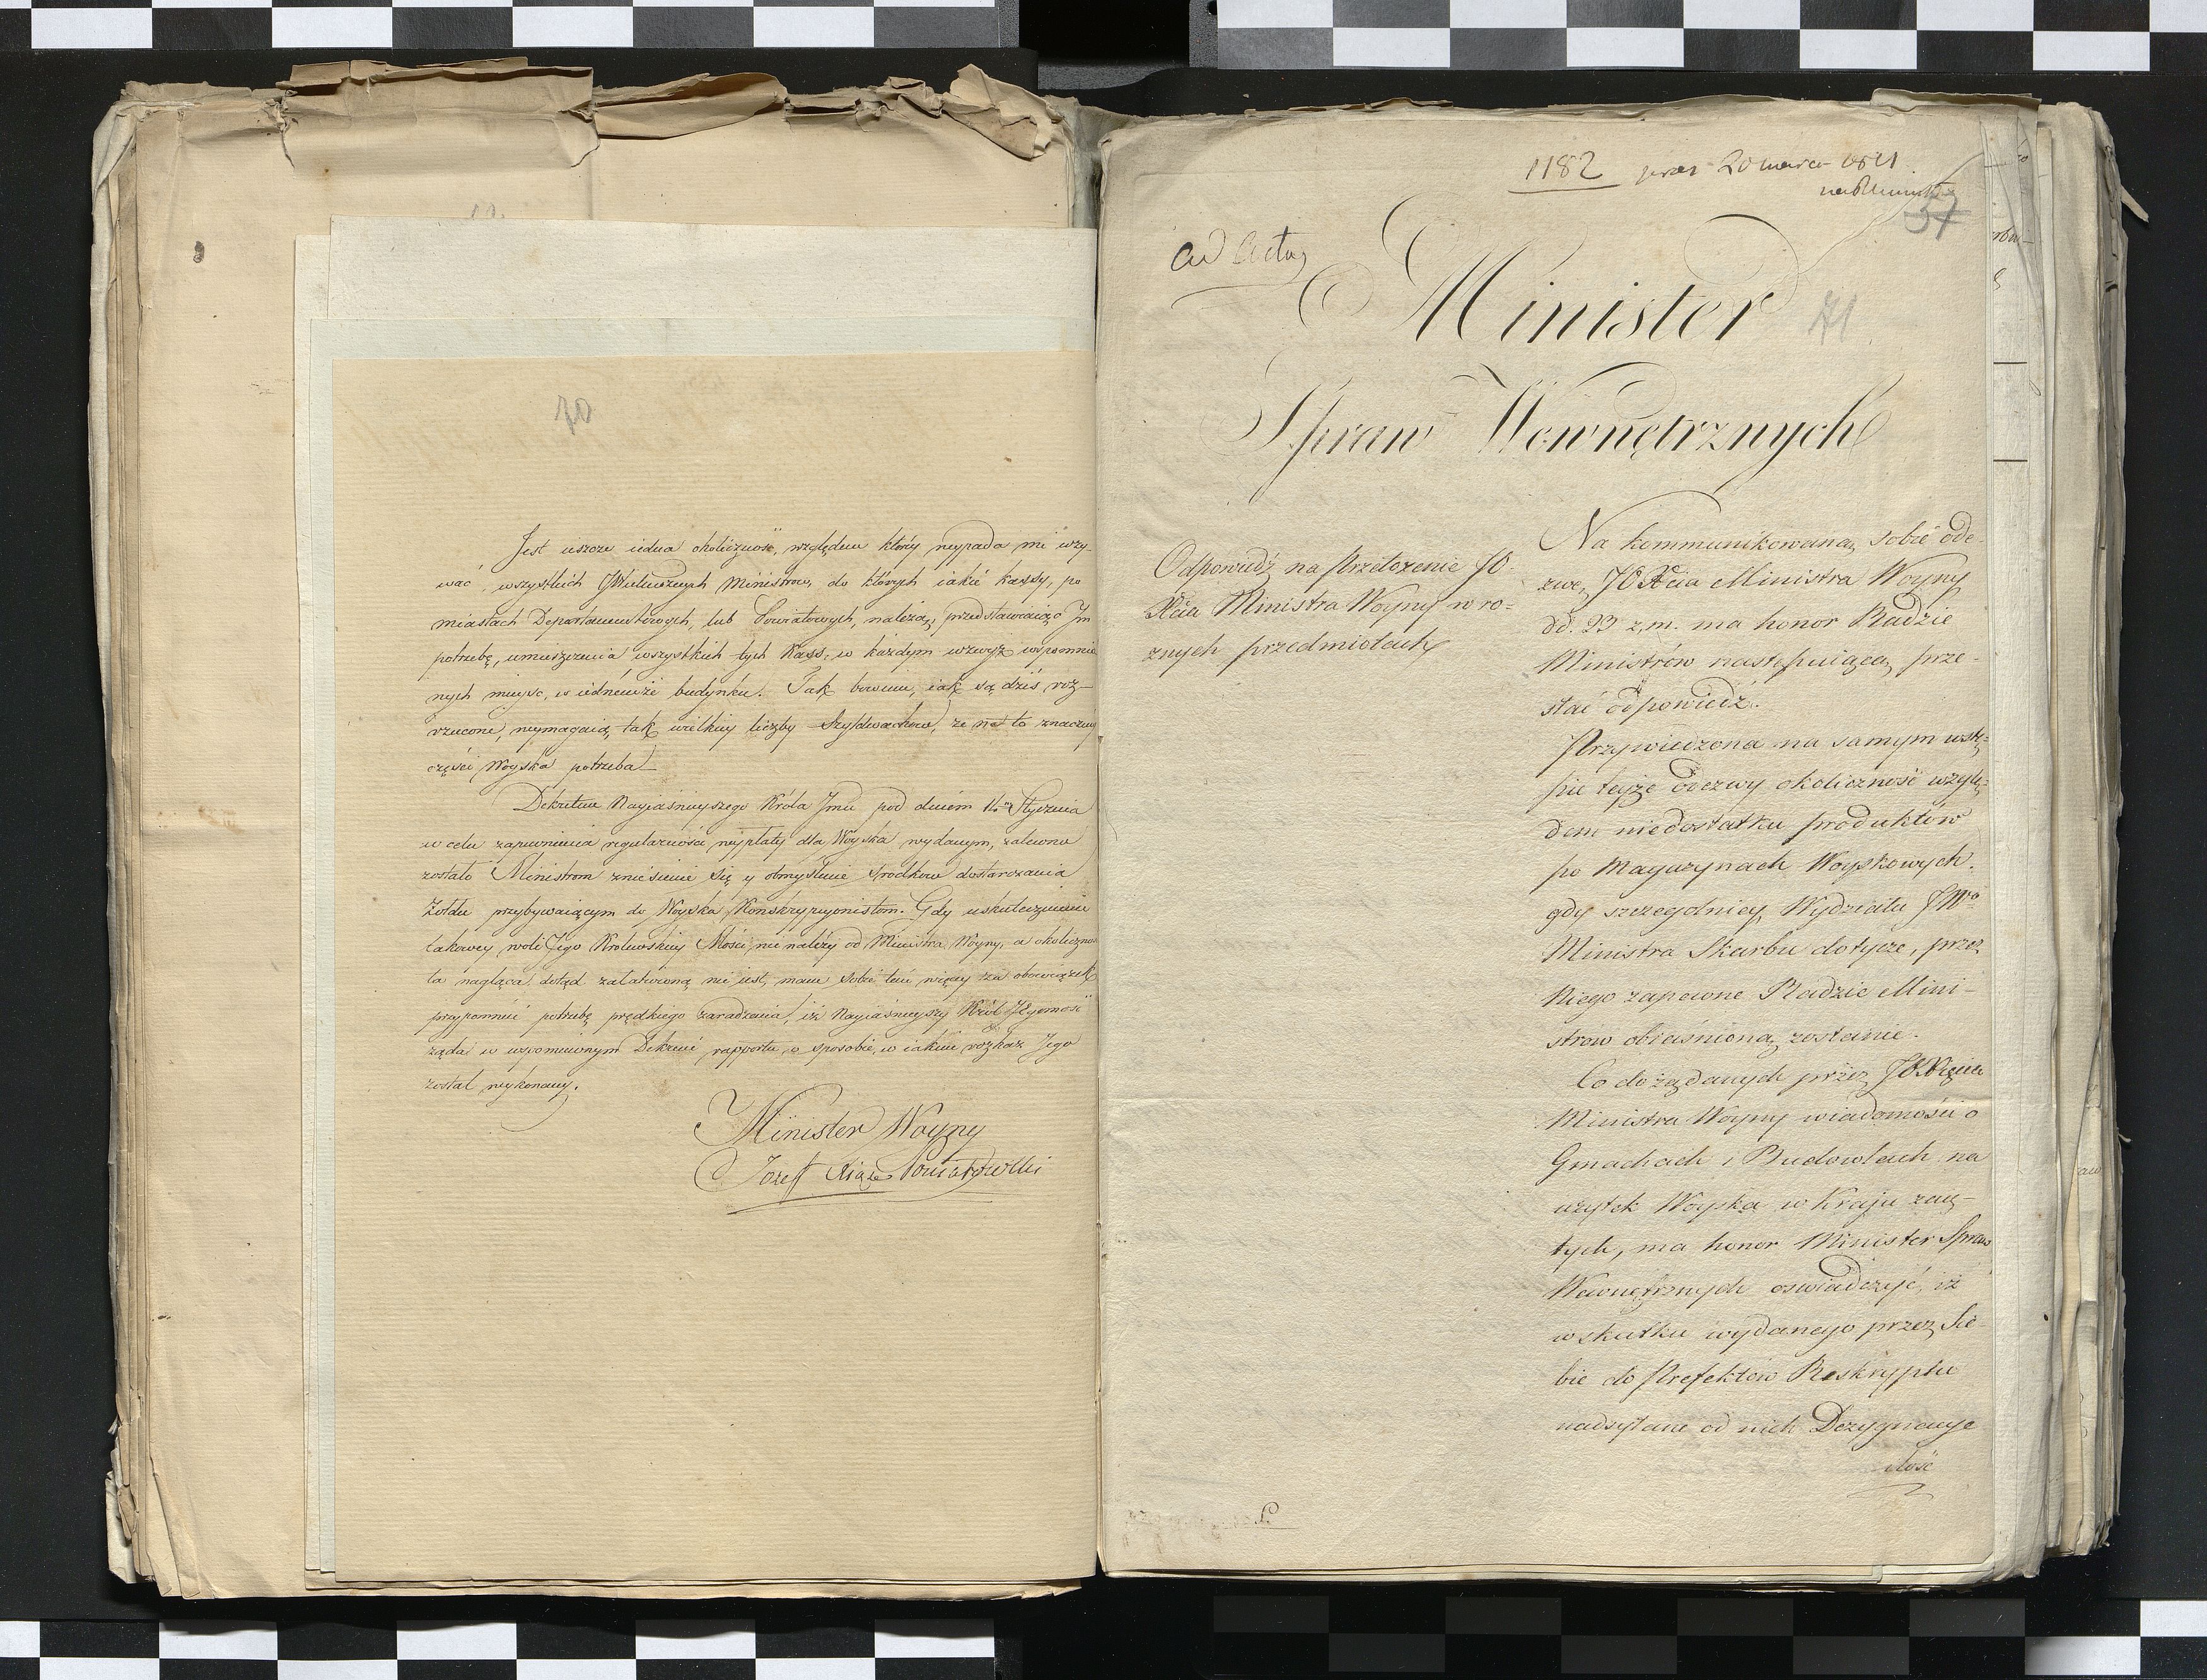 70
Jest ieszcze iedna okoliczność, względem któréy wypada mi wzy-
wać, wszystkich JWielmożnych Ministrów, do których iakie kassy, po
miastach Departamentowych, lub Powiatowych, należą, przedstawiaiąc Im
potrzebę, umieszczenia wszystkich tych Kass, w każdym wzwyż wspomnio
nych mieysc, w iednémże budynku. Tak bowiem, iak są dziś roz-
rzucone, wymagaią tak wielkiey liczby Szyldwachów, że na to znaczney
części Woyska potrzeba
Dekretem Nayiaśnieyszego Króla Jmci pod dniem Stycznia
w celu zapewnienia regularności wypłaty dla Woyska wydanym, zalecone
zostało Ministrom zniesienie się y obmyślenie środków dostarczania
Żołdu przybywaiącym do Woyska Konskrypcyonistom. Gdy uskutecznienie
takowey woli Jego Królewskiey Mości, nie należy od Ministra Woyny, a okoliczność
ta nagląca, dotąd załatwioną nie iest, mam sobie tém więcey za obowiązek
przypomnieć potrzebę prędkiego zaradzenia, iż Nayiaśnieyszy Król Jegomość
żąda w wspomnionym Dekrecie rapportu, o sposobie, w iakim rozkaz Jego
został wykonany.
Minister Woyny
Jozeff Xiąże Poniatowski
1182 prez 20 marca 1811
57
ad acta
71
Minister
Spraw Wewnętrznych
Odpowiedź na Przełożenie JO.
Xcia Ministra Woyny w ro=
znych przedmiotach
Na kommunikowaną sobie ode-
zwę JO Xcia Ministra Woyny
dd. 23 z.m. ma honor Radzie
Ministrów następuiącą prze-
słać odpowiedź.
Przywiedzona na samym wstę=
pie teyże odezwy okoliczność wzglę=
dem niedostatku produktów
po Magazynach Woyskowych,
gdy szczególniey Wydziału JWo
Ministra Skarbu dotycze, przez
Niego zapewne Radzie Mini-
strów obiaśnioną zostanie.
Co do żądanych przez JO Xięcia
Ministra Woyny wiadomości o
Gmachach i Budowlach na
użytek Woyska w Kraju zaię-
tych, ma honor Minister Spraw
Wewnętrznych oświadczyć, iż
w skutku wydanego przez Sie-
bie do Prefektów Reskryptu
nadsyłane od nich Dezygnacye
ilość